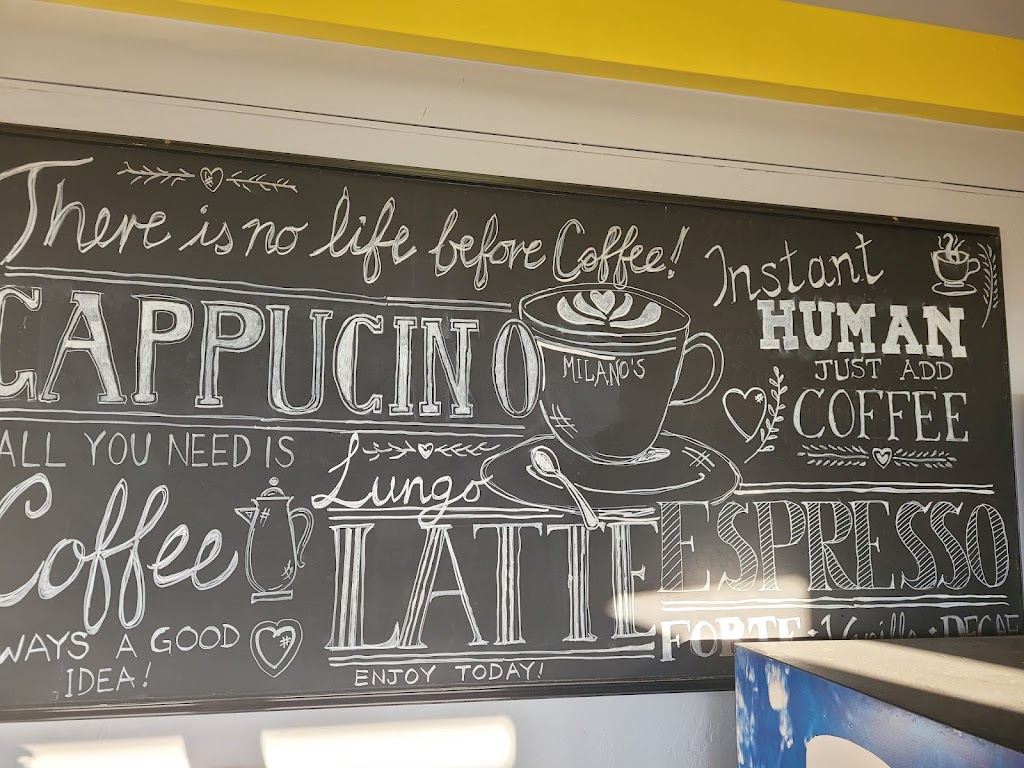 There is no life before Coffee!
CAPPUCINO
MILANO'S
ALL YOU NEED IS
Coffee
WAYS A GOOD
IDEA!
Lungo
LATTE
ENJOY TODAY!
Instant
HUMAN
JUST ADD
COFFEE
ESPRESSO
FORTE · Vanilla · DECAF